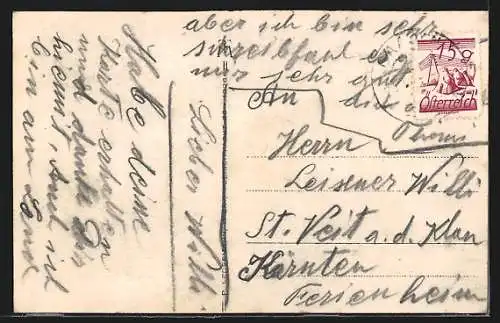 Lieber Willi
Habe deine
Karte erhalten
und danke dir
hiermit, Auch ich
bin am Land
aber ich bin sehr
schreibfaul es g
mir sehr gut
An
Herrn
Leisner Willi
St. Veit a.d. Glan
Kärnten
Ferienheim
15g
Österreich